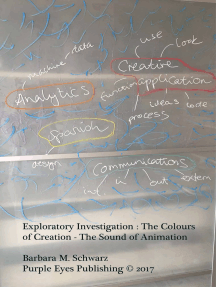 use
look
machine data
Creative
function application
Analytics
ideas code
process
Spanish
design
Communications
int
out extern
Exploratory Investigation : The Colours
of Creation - The Sound of Animation
Barbara M. Schwarz
Purple Eyes Publishing © 2017